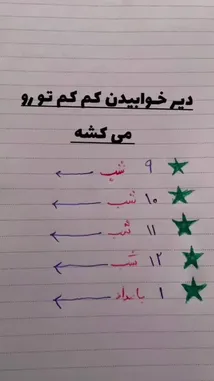 دیر خوابیدن کم کم تو رو
می کشه
۹ شب
۱۰ شب
۱۱ شب
۱۲ شب
۱ بامداد